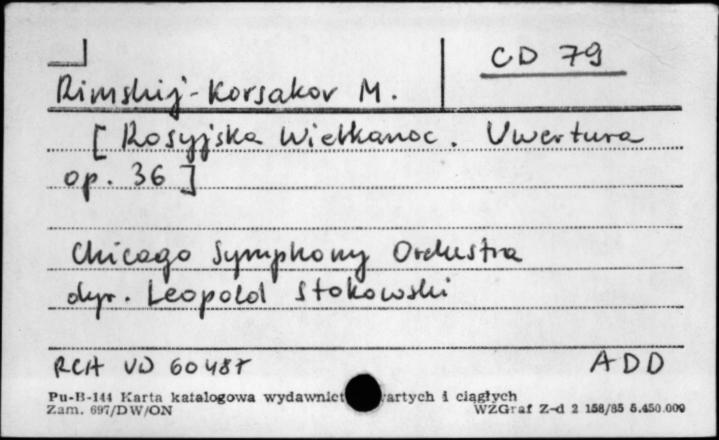 CD 79
Rimskij-Korsakov M.
[ Rosyjska Wielkanoc. Uwertura
op. 36 ]
Chicago Symphony Orchestra
dyr. Leopold Stokowski
RCA VD 60487
ADD
Pu-B-144 Karta katalogowa wydawnict artych i ciągłych
Zam. 697/DW/ON
WZGraf Z-d 2 158/85 5.450.000